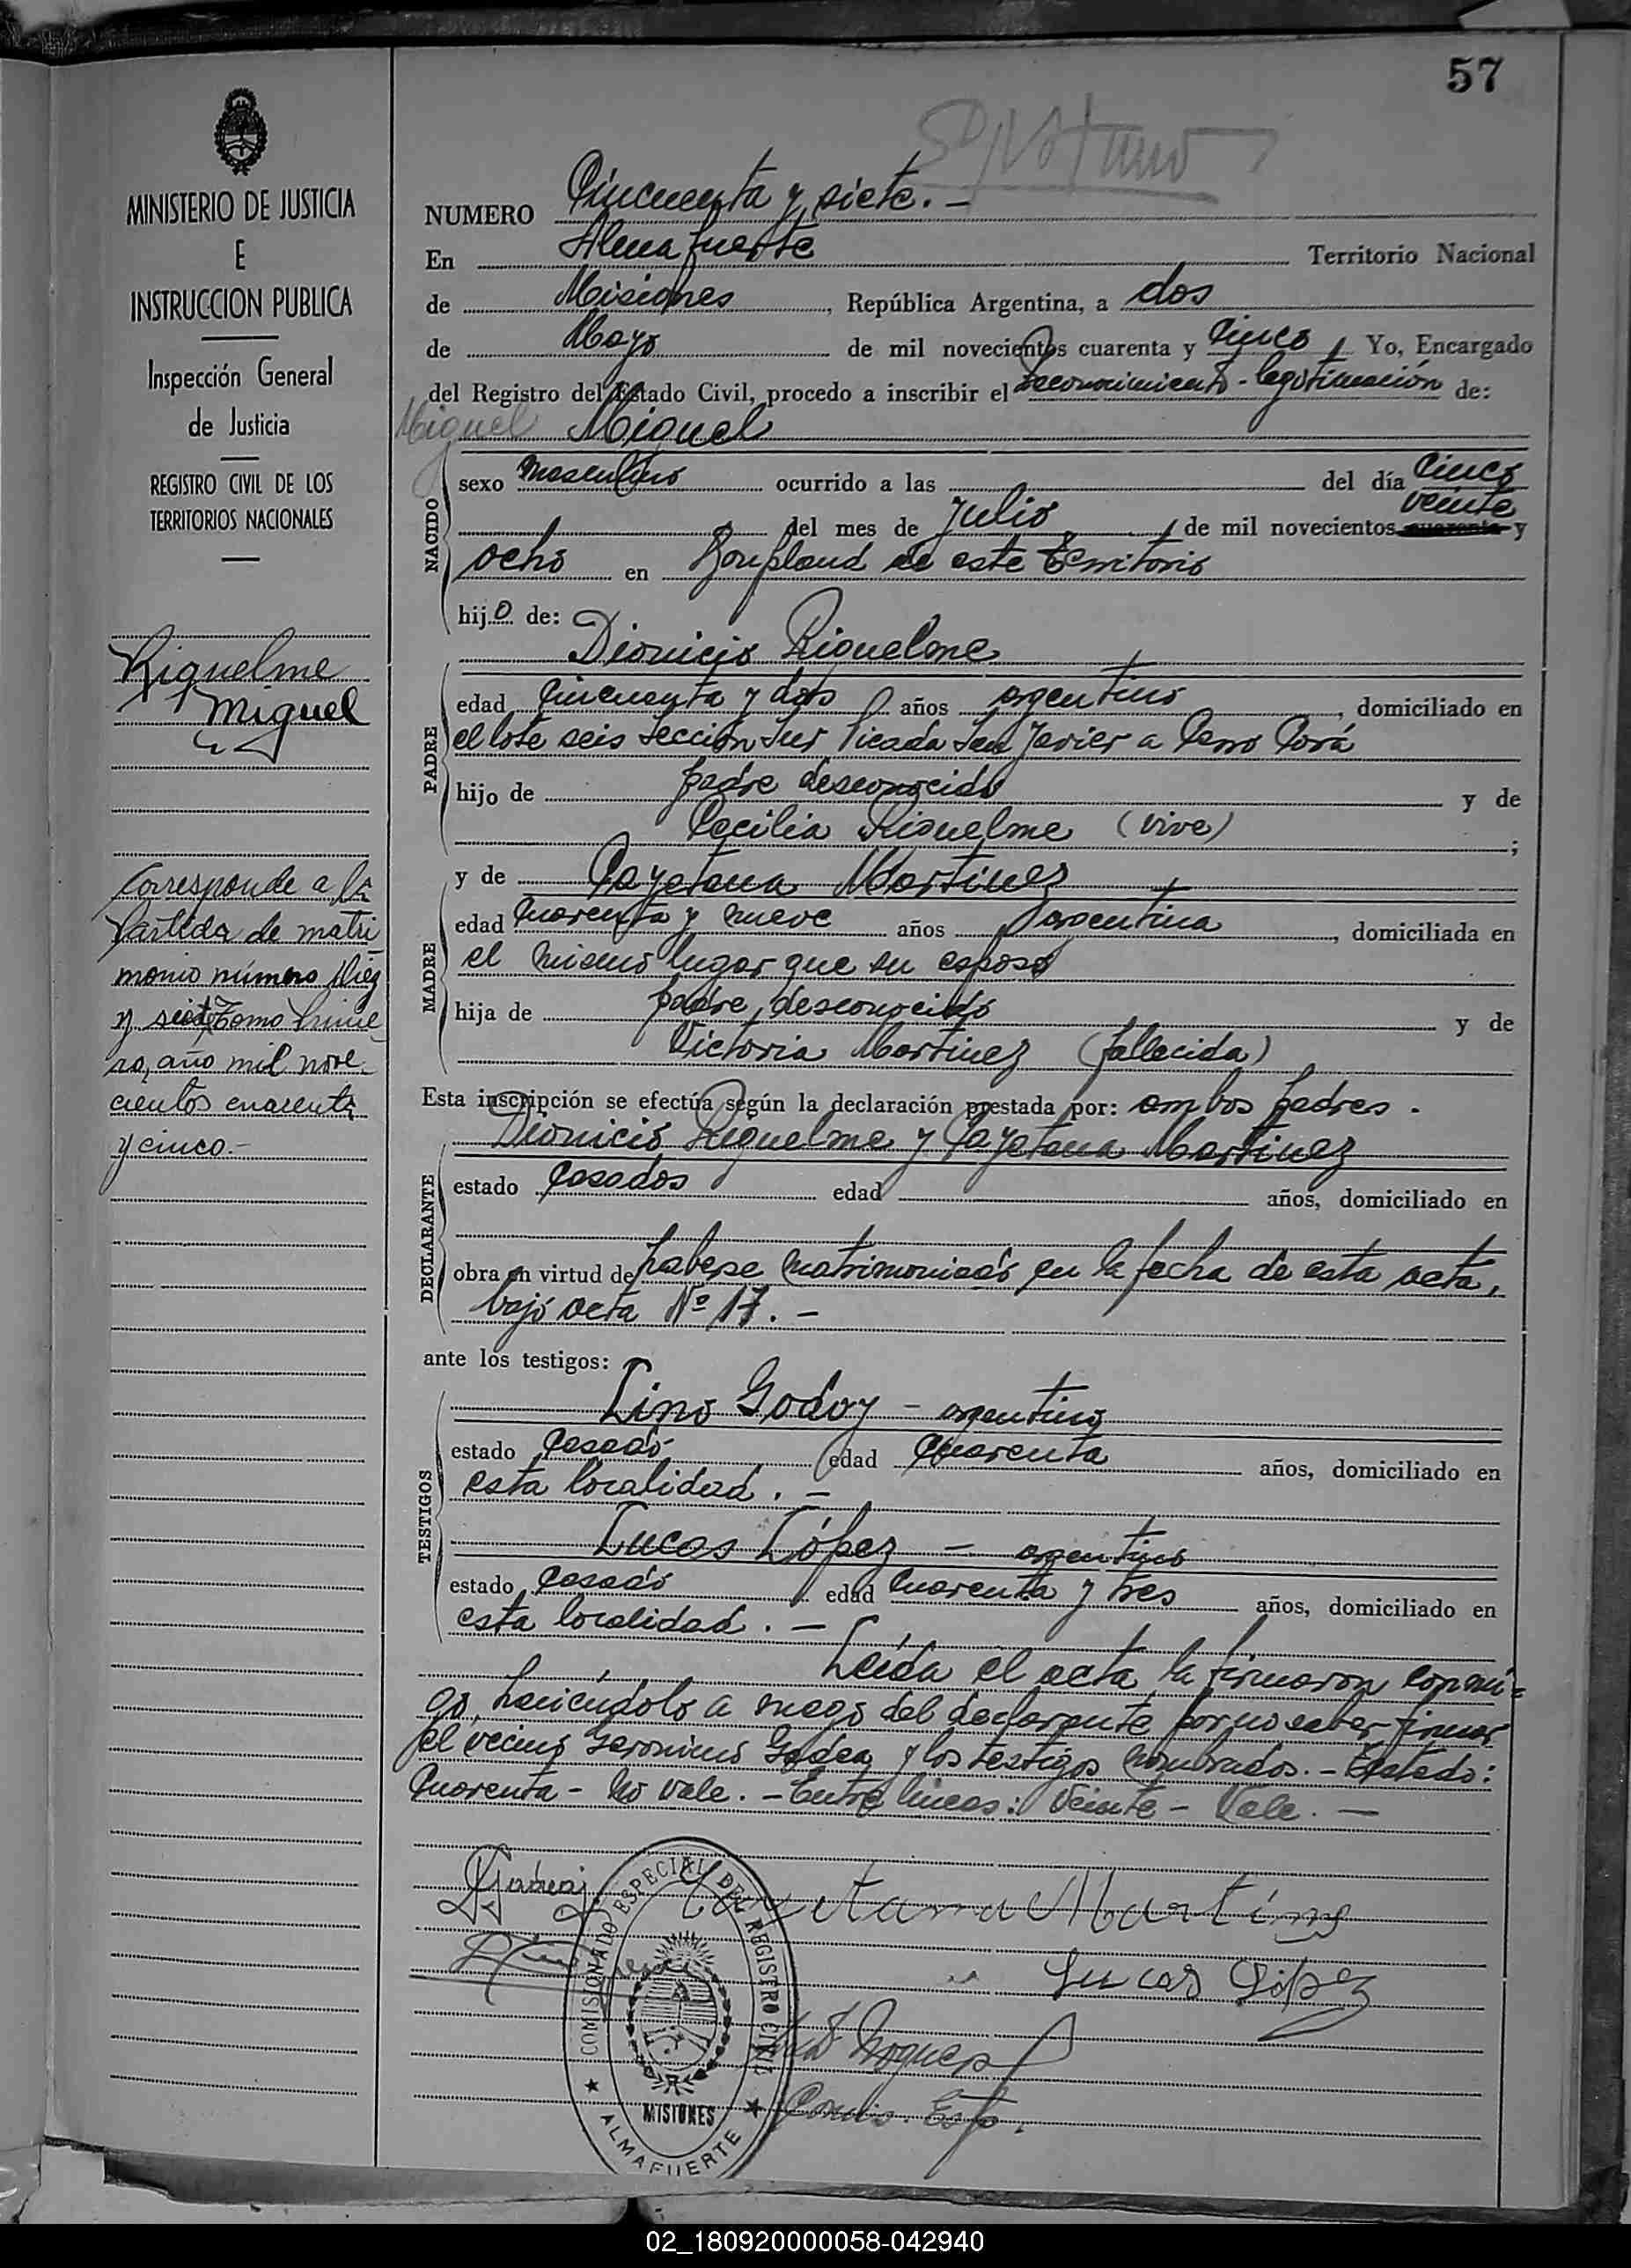 57
MINISTERIO DE JUSTICIA
E
INSTRUCCION PUBLICA
Inspección General
de Justicia
REGISTRO CIVIL DE LOS
TERRITORIOS NACIONALES
Riquelme
Miguel
Corresponde a la
Partida de matri
monio número diez
y siete Tomo Prime
ro, año mil nove
cientos cuarenta
y cinco.-
NUMERO Cincuenta y siete.-
En Almafuerte Territorio Nacional
de Misiones, República Argentina, a dos
de Mayo de mil novecientos cuarenta y cinco, Yo, Encargado
del Registro del Estado Civil, procedo a inscribir el reconocimiento-legitimación de:
Miguel Miguel
NACIDO
sexo masculino ocurrido a las del día cinco
veinte
del mes de Julio, de mil novecientos cuarenta y
ocho en Bonpland de este Territorio
hijo de:
Dionicio Riquelme
PADRE
edad cincuenta y dos años argentino, domiciliado en
el lote seis Sección Sur Picada San Javier a Cerro Corá
hijo de padre desconocido y de
Cecilia Riquelme (vive);
y de Cayetana Martinez
MADRE
edad cuarenta y nueve años argentina, domiciliada en
el mismo lugar que su esposo
hija de padre desconocido y de
Victoria Martinez (fallecida)
Esta inscripción se efectúa según la declaración prestada por: ambos padres.
Dionicio Riquelme y Cayetana Martinez
DECLARANTE
estado casados edad años, domiciliado en
obra en virtud de haberse matrimoniado en la fecha de esta acta,
bajo acta Nº 17.-
ante los testigos:
TESTIGOS
Lino Godoy - argentino
estado casado edad cuarenta años, domiciliado en
esta localidad.-
Lucas López - argentino
estado casado edad cuarenta y tres años, domiciliado en
esta localidad.-
Leída el acta la firmaron conmi=
go, haciéndolo a ruego del declarante por no saber firmar
el vecino Geronimo Godoy y los testigos nombrados.- Testado:
Cuarenta - No vale.- Entre lineas: Veinte - Vale.-
Cayetana Martines
Lucas Lópes
COMISIONADO ESPECIAL DEL REGISTRO CIVIL
MISIONES
ALMAFUERTE
Comis. Esp.
02_180920000058-042940